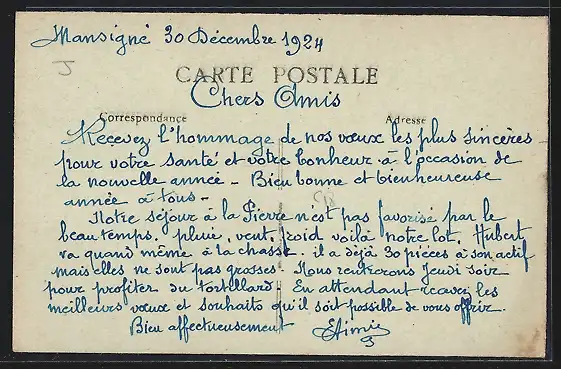 Mansigné 30 Décembre 1924
J
CARTE POSTALE
Chers Amis
Correspondance
Adresse
Recevez l'hommage de nos vœux les plus sincères
pour votre santé et votre bonheur à l'occasion de
la nouvelle année - Bien bonne et bienheureuse
année à tous -
Notre séjour à la Pierre n'est pas favorisé par le
beau temps. pluie, vent, froid voilà notre lot. Hubert
va quand même à la chasse. il a déjà 30 pièces à son actif
mais elles ne sont pas grosses. Nous rentrerons Jeudi soir
pour profiter du tortillard. En attendant recevez les
meilleurs vœux et souhaits qu'il soit possible de vous offrir.
Bien affectueusement